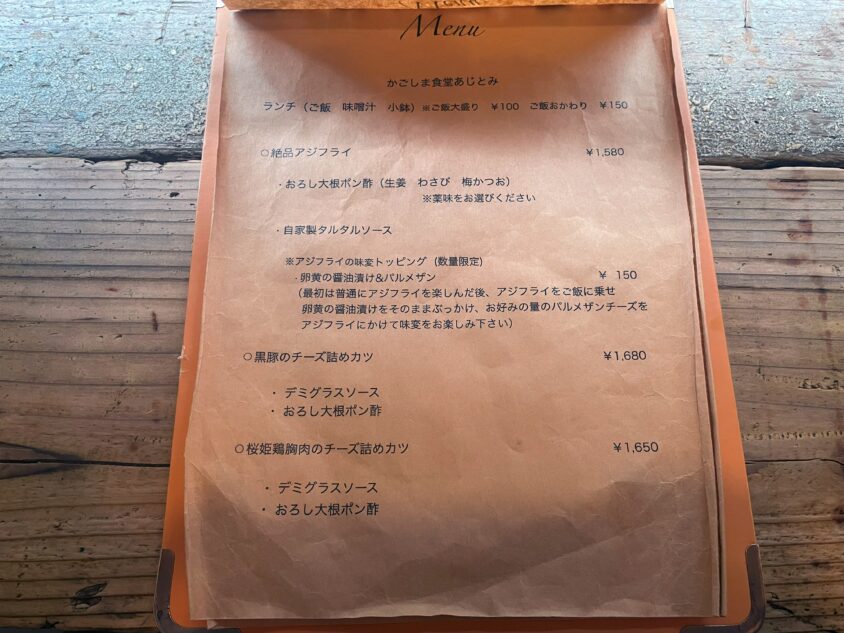 Menu
かごしま食堂あじとみ
ランチ（ご飯　味噌汁　小鉢）※ご飯大盛り　￥100　ご飯おかわり　￥150
○絶品アジフライ　￥1,580
・おろし大根ポン酢（生姜　わさび　梅かつお）
※薬味をお選びください
・自家製タルタルソース
※アジフライの味変トッピング（数量限定）
・卵黄の醤油漬け&パルメザン　￥ 150
（最初は普通にアジフライを楽しんだ後、アジフライをご飯に乗せ
卵黄の醤油漬けをそのままぶっかけ、お好みの量のパルメザンチーズを
アジフライにかけて味変をお楽しみ下さい）
○黒豚のチーズ詰めカツ　￥1,680
・デミグラスソース
・おろし大根ポン酢
○桜姫鶏胸肉のチーズ詰めカツ　￥1,650
・デミグラスソース
・おろし大根ポン酢